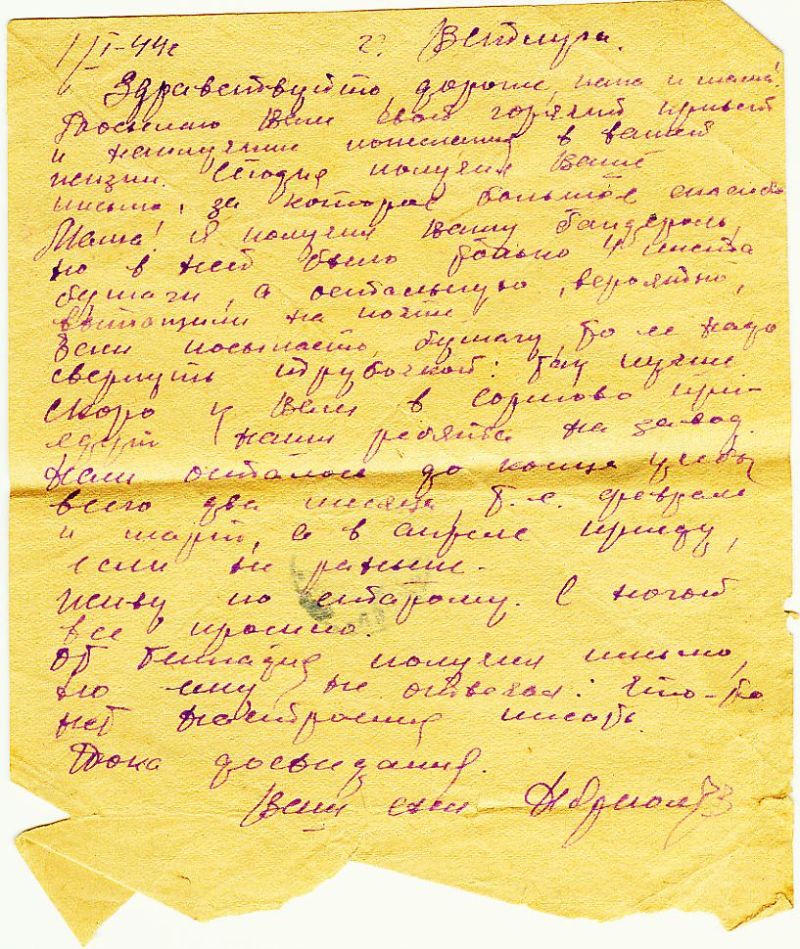 1/I-44г г. Ветлуга.
Здравствуйте, дорогие, папа и мама!
Посылаю Вам свой горячий привет
и наилучшие пожелания в вашей
жизни. Сегодня получил Ваше
письмо, за которое большое спасибо
Мама! Я получил Вашу бандероль,
но в ней было только 4 листа
бумаги, а остальную, вероятно,
вытащили на почте
Если посылаете бумагу, то ее надо
свернуть трубочкой: так лучше.
Скоро у Вам в Сормово при-
едут наши ребята на завод.
Нам осталось до конца учебы
всего два месяца, т.е. февраль
и март, а в апреле приеду,
если не раньше.
Живу по старому. С ногой
все прошло.
От Геннадия получил письмо,
но ему не отвечал: что-то
нет настроения писать.
Пока досвидания.
Ваш сын